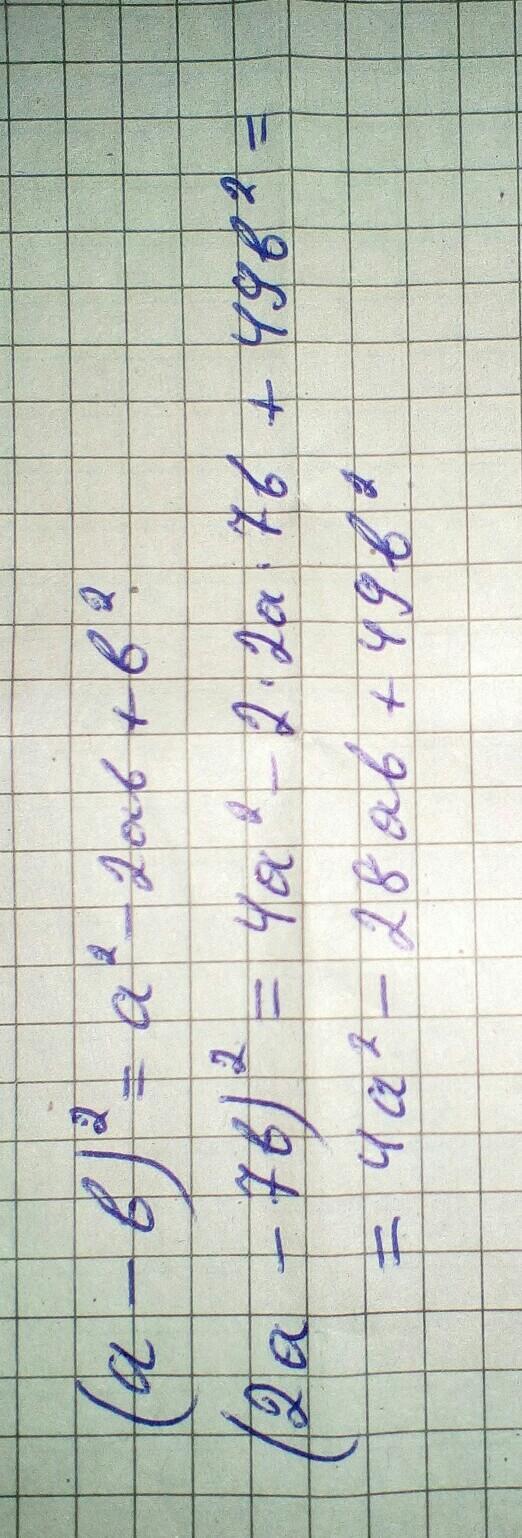 (a - b)² = a² - 2ab + b²
(2a - 7b)² = 4a² - 2·2a·7b + 49b² =
= 4a² - 28ab + 49b²